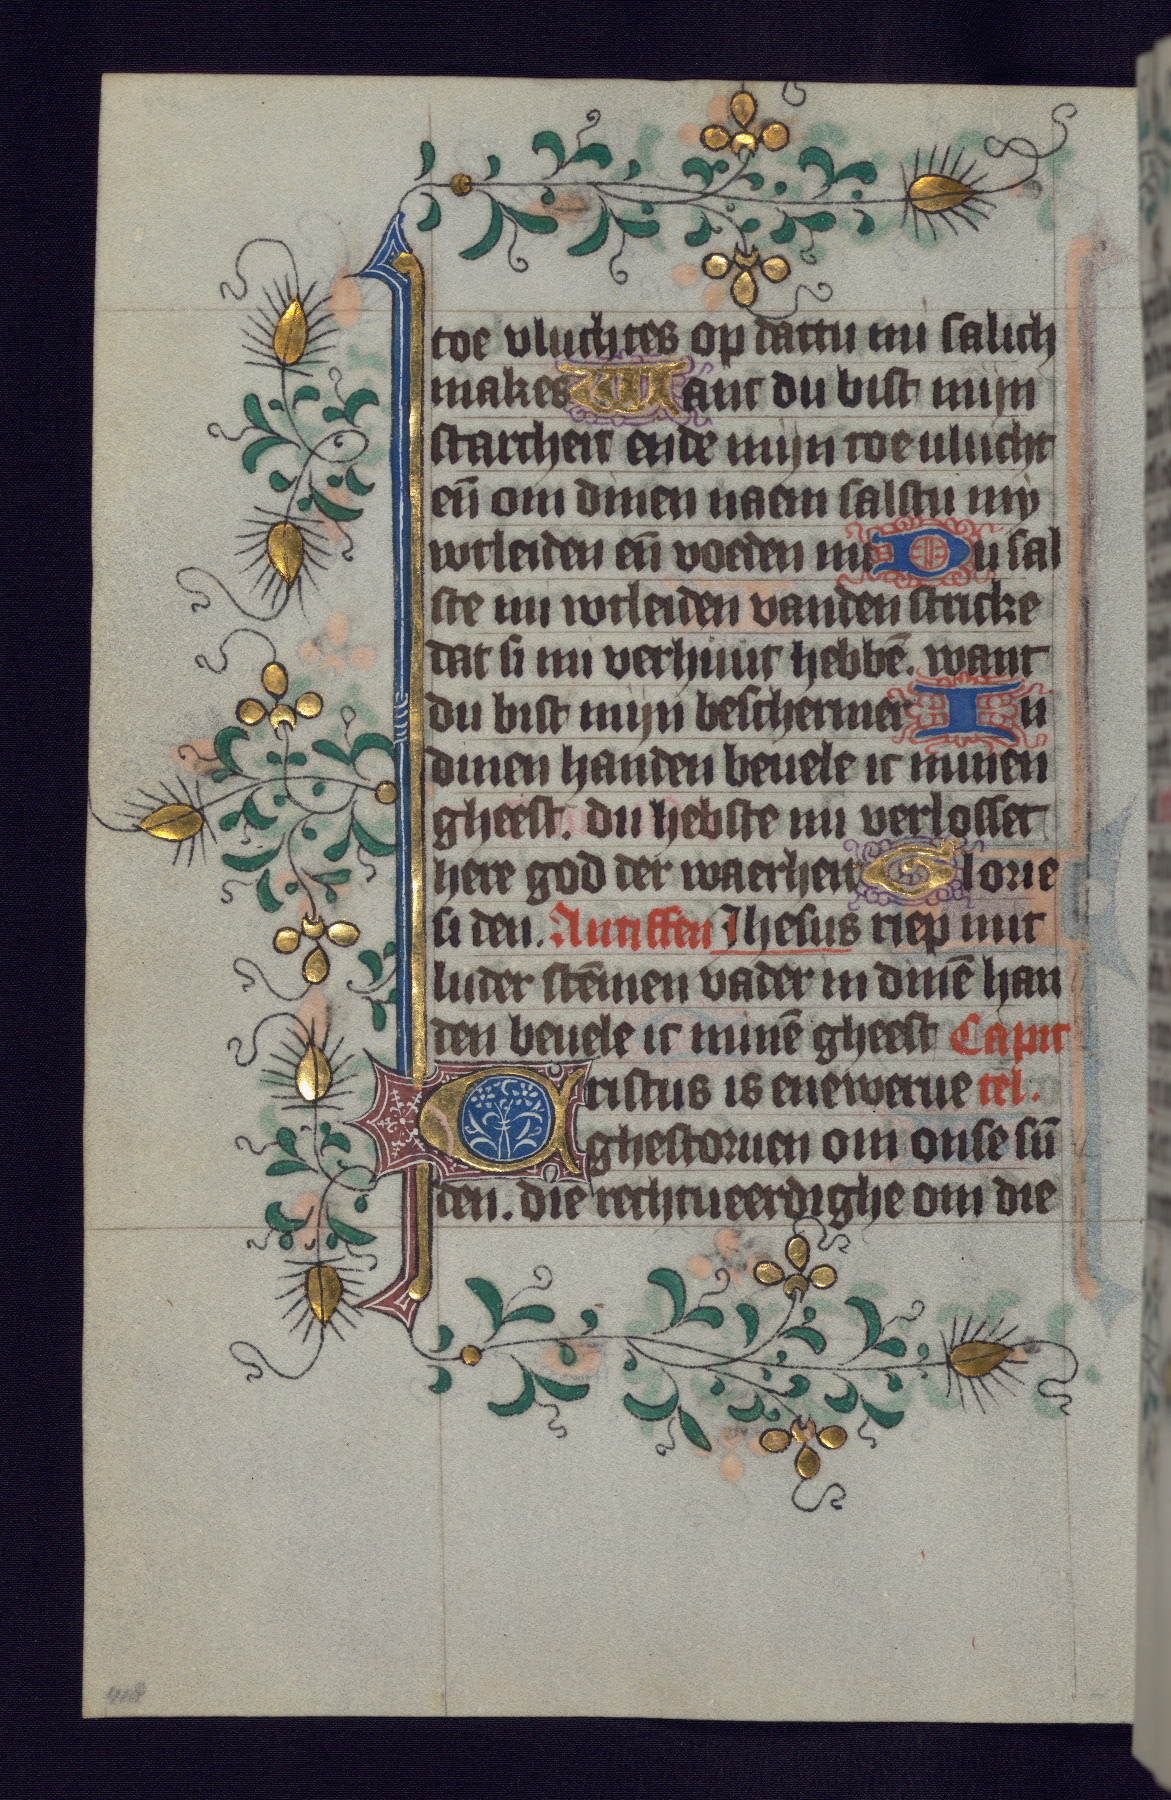 toe vluchtes op dattu mi salich
makes Want du bist mijn
starcheit ende mijn toe vlucht
en̄ om dinen naem salstu my
wtleiden en̄ voeden mi Du sal
ste mi wtleiden vanden stricke
dat si mi verhuut hebbē. want
du bist mijn beschermer In
dinen handen beuele ic minen
gheest. du hebste mi verlosset
here god der waerheit Glorie
si den. Antiffen Jhesus riep mit
luder stēmen vader in dinē han
den beuele ic minē gheest Capit
Cristus is enewerue tel.
ghestoruen om onse sū
den. die rechtueerdighe om die